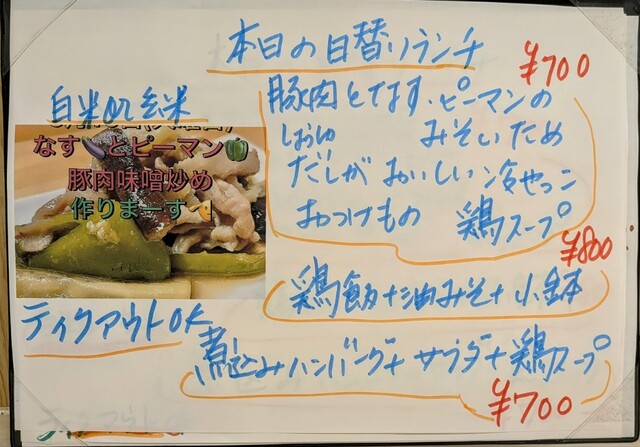 本日の日替りランチ
¥700
白米or玄米
なす🍆とピーマン🫑
豚肉味噌炒め
作りまーす
豚肉となす、ピーマンの
みそいため
だしがおいしい冷やっこ
おつけもの 鶏スープ
¥800
鶏飯+油みそ+小鉢
テイクアウトOK
煮込みハンバーグ+サラダ+鶏スープ
¥700